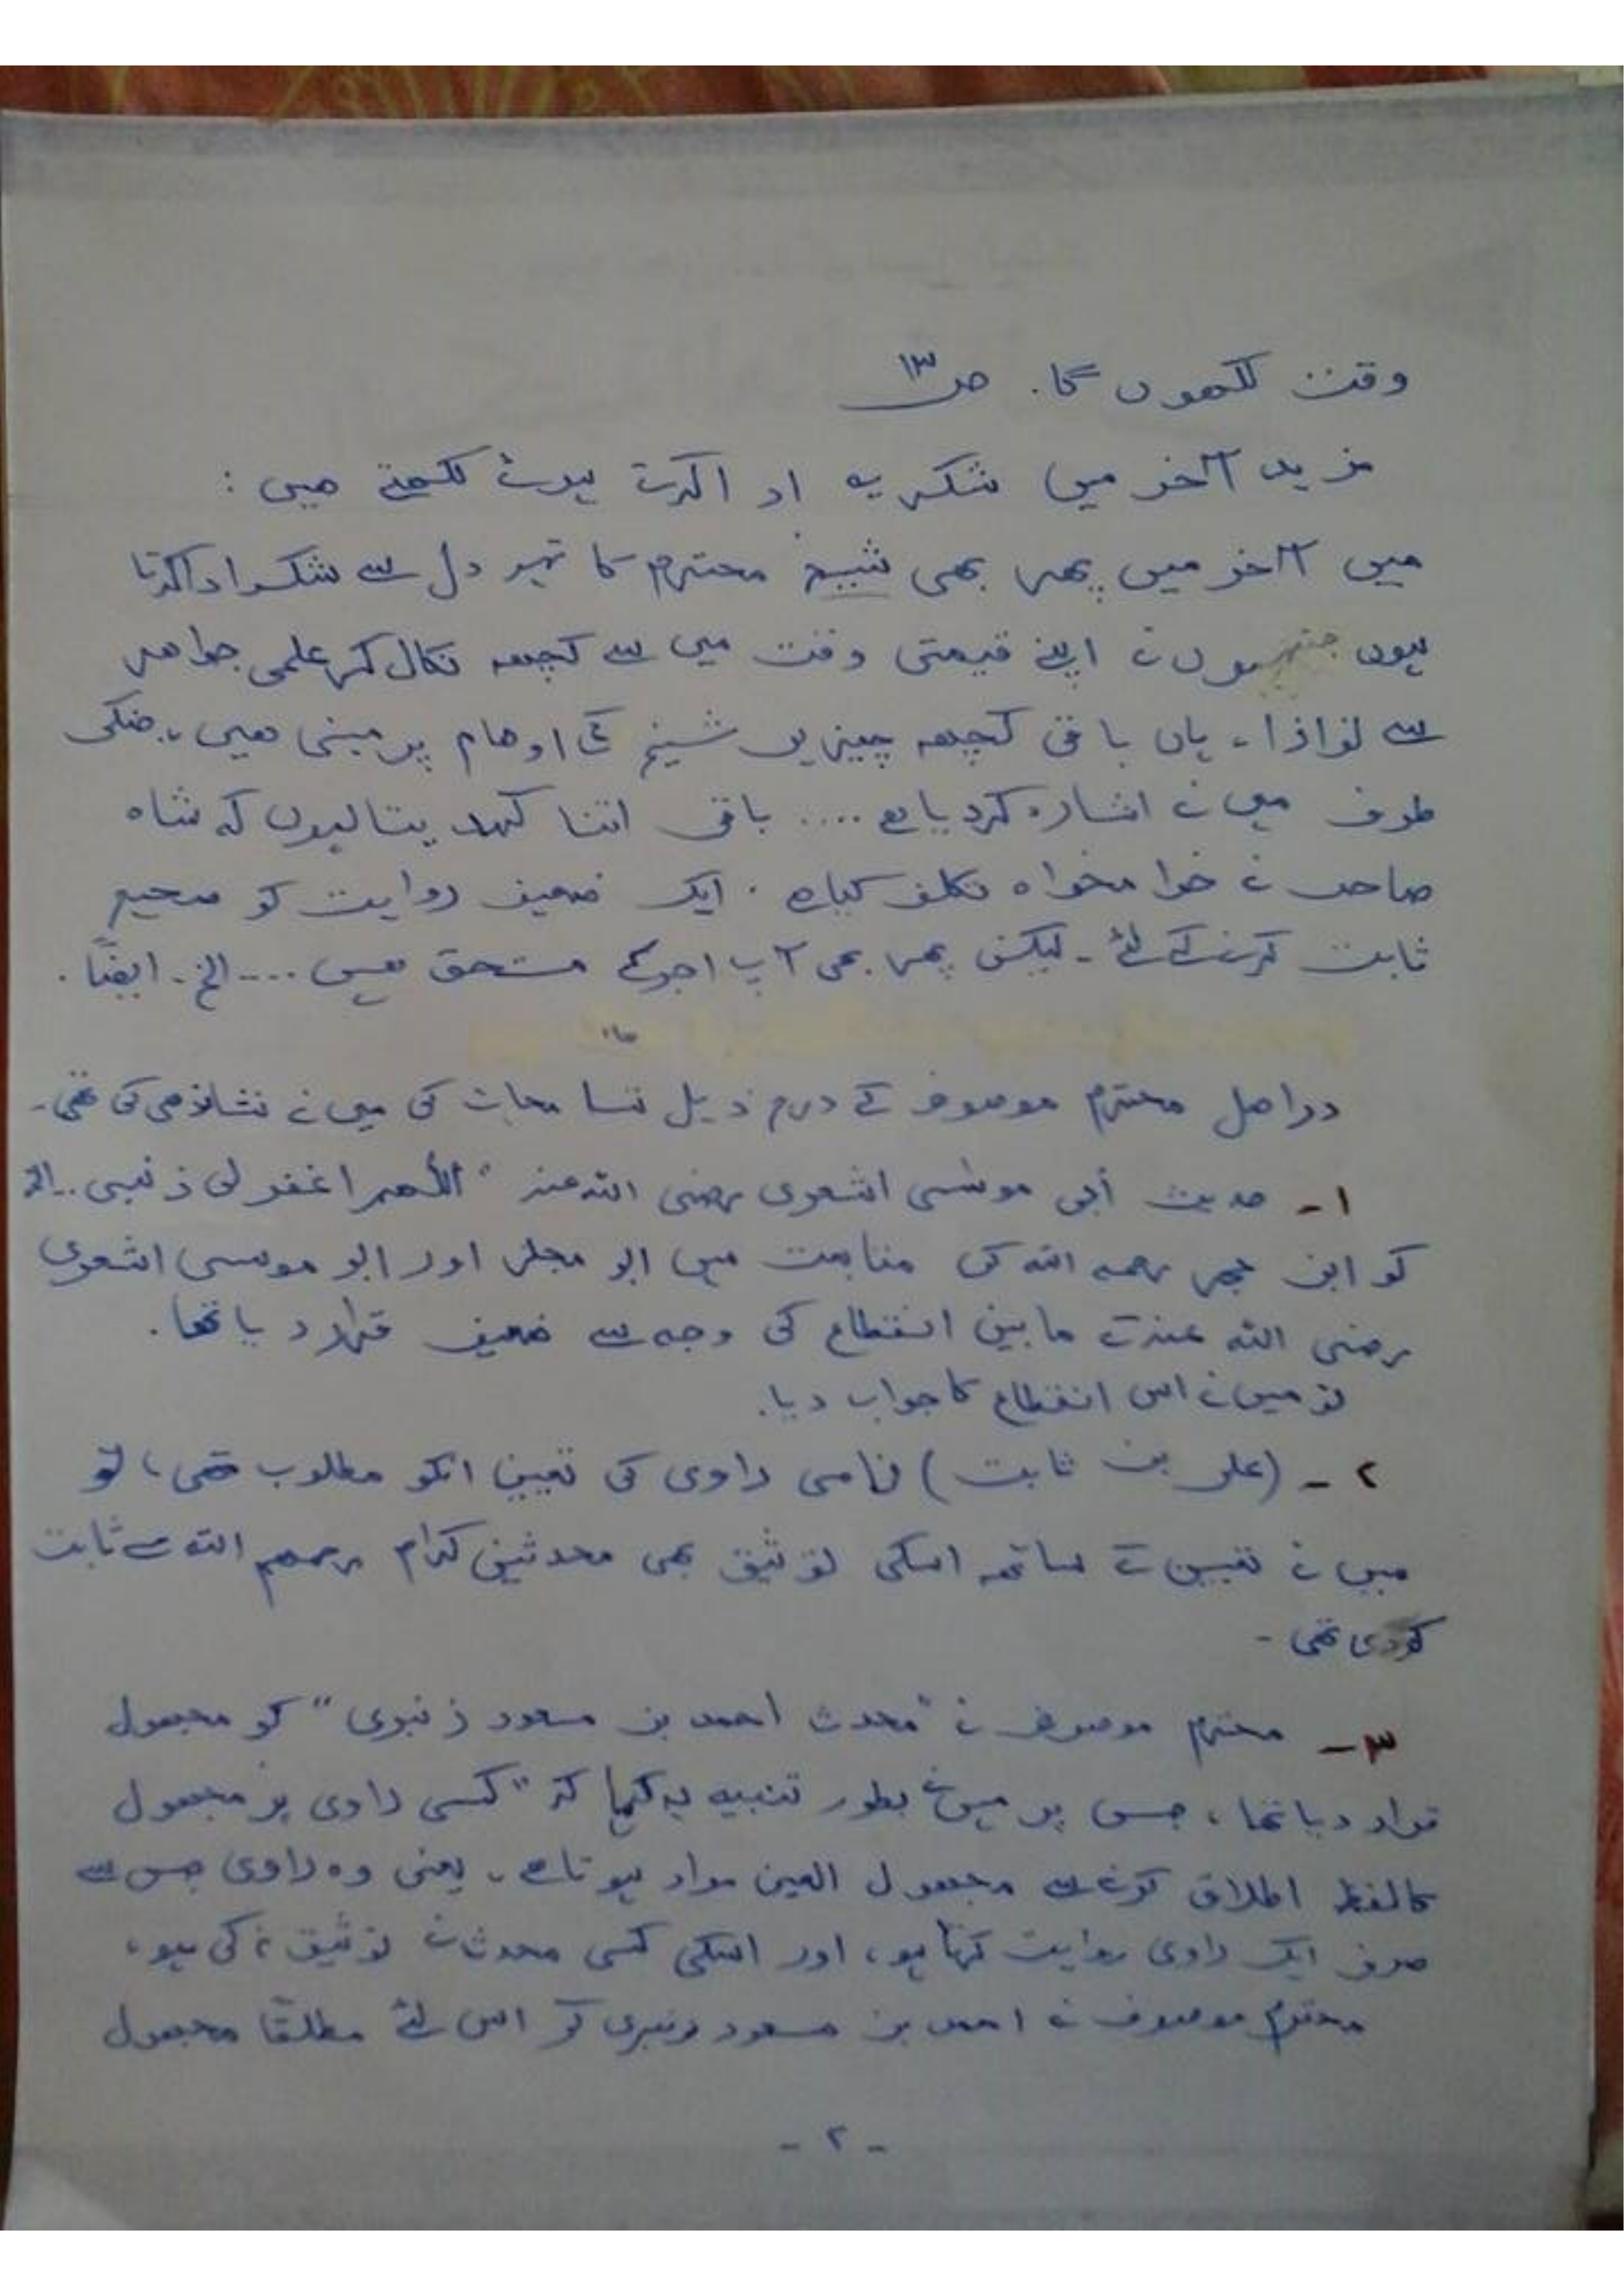 وقت لکھوں گا۔ ص ۱۳
مزید آخر میں شکریہ ادا کرتے ہوئے لکھتے ھیں :
میں آخر میں پھر بھی شیخ محترم کا تہہ دل سے شکر ادا کرتا
ہوں جنہوں نے اپنے قیمتی وقت میں سے کچھ نکال کر علمی جواھر
سے نوازا۔ ہاں باقی کچھ چیزیں شیخ کی اوھام پر مبنی ھیں، جنکی
طرف میں نے اشارہ کردیا ھے .... باقی اتنا کہہ دیتا ہوں کہ شاہ
صاحب نے خوا مخواہ تکلف کیا ھے ۔ ایک ضعیف روایت کو صحیح
ثابت کرنے کے لئے ۔ لیکن پھر بھی آپ اجر کے مستحق ھیں .... الخ ۔ ایضًا ۔
دراصل محترم موصوف کے درج ذیل تسامحات کی میں نے نشاندھی کی تھی۔
۱ ۔ حدیث أبی موسٰی اشعری رضی اللہ عنہ " اللّٰھم اغفرلی ذنبی .. الخ
کو ابن حجر رحمہ اللہ کی متابعت میں ابو مجلز اور ابو موسی اشعری
رضی اللہ عنہ کے مابین انقطاع کی وجہ سے ضعیف قرار دیا تھا۔
تو میں نے اس انقطاع کا جواب دیا۔
۲ ۔ (علی بن ثابت) نامی راوی کی تعیین انکو مطلوب تھی، تو
میں نے تعیین کے ساتھ اسکی توثیق بھی محدثین کرام رحمھم اللہ سے ثابت
کردی تھی ۔
۳ ۔ محترم موصوف نے "محدث احمد بن مسعود زنبری" کو مجھول
قرار دیا تھا، جس پر میں نے بطور تنبیہ یہ کہا کہ "کسی راوی پر مجھول
کا لفظ اطلاق کرنے سے مجھول العین مراد ہوتا ھے، یعنی وہ راوی جس سے
صرف ایک راوی روایت کرتا ہو، اور اسکی کسی محدث نے توثیق نہ کی ہو،
محترم موصوف نے احمد بن مسعود زنبری کو اس لئے مطلقًا مجھول
- ۲ -